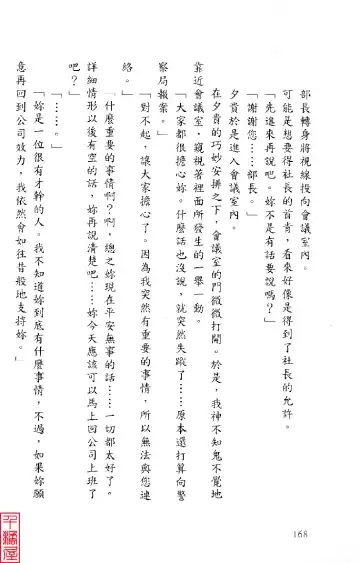 部長轉身將視線投向會議室內。
可能是想要得社長的首肯，看來好像是得到了社長的允許。
「先進來再說吧。妳不是有話要說嗎？」
「謝謝您……部長。」
夕貴於是進入會議室內。
在夕貴的巧妙安排之下，會議室的門微微打開。於是，我神不知鬼不覺地
靠近會議室，窺視著裡面所發生的一舉一動。
「大家都很擔心妳。什麼話也沒說，就突然失蹤了……原本還打算向警
察局報案。」
「對不起，讓大家擔心了。因為我突然有重要的事情，所以無法與您連
絡。」
「什麼重要的事情啊？啊，總之妳現在平安無事的話……一切都太好了。
詳細情形以後有空的話，妳再說清楚吧……妳今天應該可以馬上回公司上班了
吧？」
「……。」
「妳是一位很有才幹的人。我不知道妳到底有什麼事情，不過，如果妳願
意再回到公司效力，我依然會如往昔般地支持妳。」
168
千鶴屋